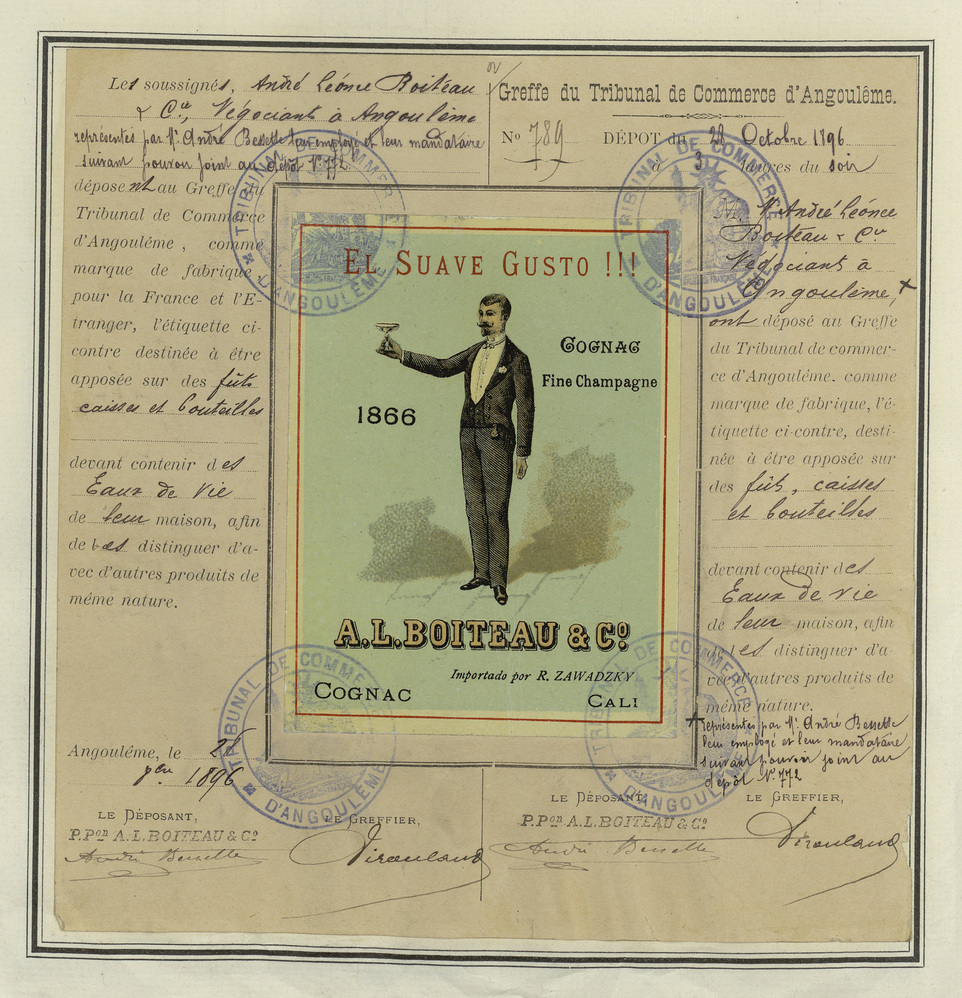 Les soussignés, André Léonce Boiteau
& Cie, Négociants à Angoulême
représentés par Mr. André Bessette leur employé et leur mandataire
suivant pouvoir joint au dépôt No. 772
déposent au Greffe du
Tribunal de Commerce
d'Angoulême, comme
marque de fabrique
pour la France et l'E-
tranger, l'étiquette ci-
contre destinée à être
apposée sur des fûts
caisses et bouteilles
devant contenir des
Eaux de vie
de leur maison, afin
de les distinguer d'a-
vec d'autres produits de
même nature.
Angoulême, le 28
1896
LE DÉPOSANT,
P.PON A.L.BOITEAU & Co
André Bessette
LE GREFFIER,
Greffe du Tribunal de Commerce d'Angoulême.
No 789 DÉPOT du 28 Octobre 1896
à 3 heures du soir
M. André Léonce
Boiteau & Cie
Négociants à
Angoulême, +
ont déposé au Greffe
du Tribunal de commer-
ce d'Angoulême. comme
marque de fabrique, l'é-
tiquette ci-contre, desti-
née à être apposée sur
des fûts, caisses
et bouteilles
devant contenir des
Eaux de vie
de leur maison, afin
de les distinguer d'a-
vec d'autres produits de
même nature.
+ représentés par Mr. André Bessette
leur employé et leur mandataire
suivant pouvoir joint au
dépôt No. 772
LE DÉPOSANT,
P.PON A.L.BOITEAU & Co
André Bessette
LE GREFFIER,
EL SUAVE GUSTO !!!
COGNAC
Fine Champagne
1866
A.L.BOITEAU & Co.
Importado por R. ZAWADZKY
COGNAC
CALI
TRIBUNAL DE COMMERCE
D'ANGOULÊME
TRIBUNAL DE COMMERCE
D'ANGOULÊME
TRIBUNAL DE COMMERCE
D'ANGOULÊME
TRIBUNAL DE COMMERCE
D'ANGOULÊME